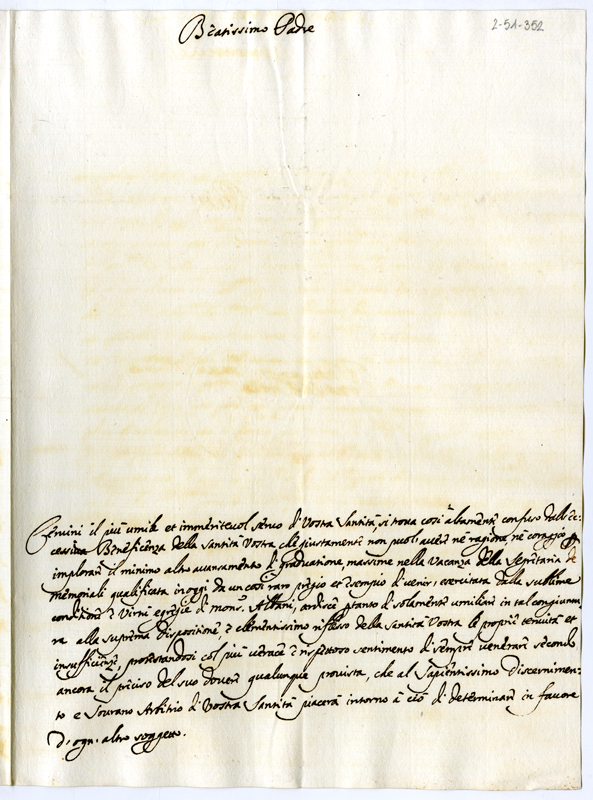 Beatissimo Padre
2-51-352
Cervini il più umile et immeritevol servo di Vostra Santità si trova così altamente confuso dall'ec-
cessiva Beneficenza della Santità Vostra che giustamente non puol avere nè ragione nè coraggio
implorare il minimo altro avanzamento di graduatione, massime nella Vacanza della Segretaria de
memoriali qualificata in oggi da un così raro pregio et esempio di venir esercitata dalla sublime
conditione e Virtù egregie di mons.r Albani, ardisce pertanto di solamente umiliare in tal congiuntu-
ra alla suprema dispositione, e clementissimo riflesso della Santità Vostra le proprie tenuità et
insufficienze, protestandosi col più verace e rispettoso sentimento di sempre venerare secondo
ancora il preciso del suo dovere qualunque provista, che al Sapientissimo Discernimen-
to e Sovrano Arbitrio di Vostra Santità piacerà intorno a ciò di determinare in favore
d'ogni altro soggetto.